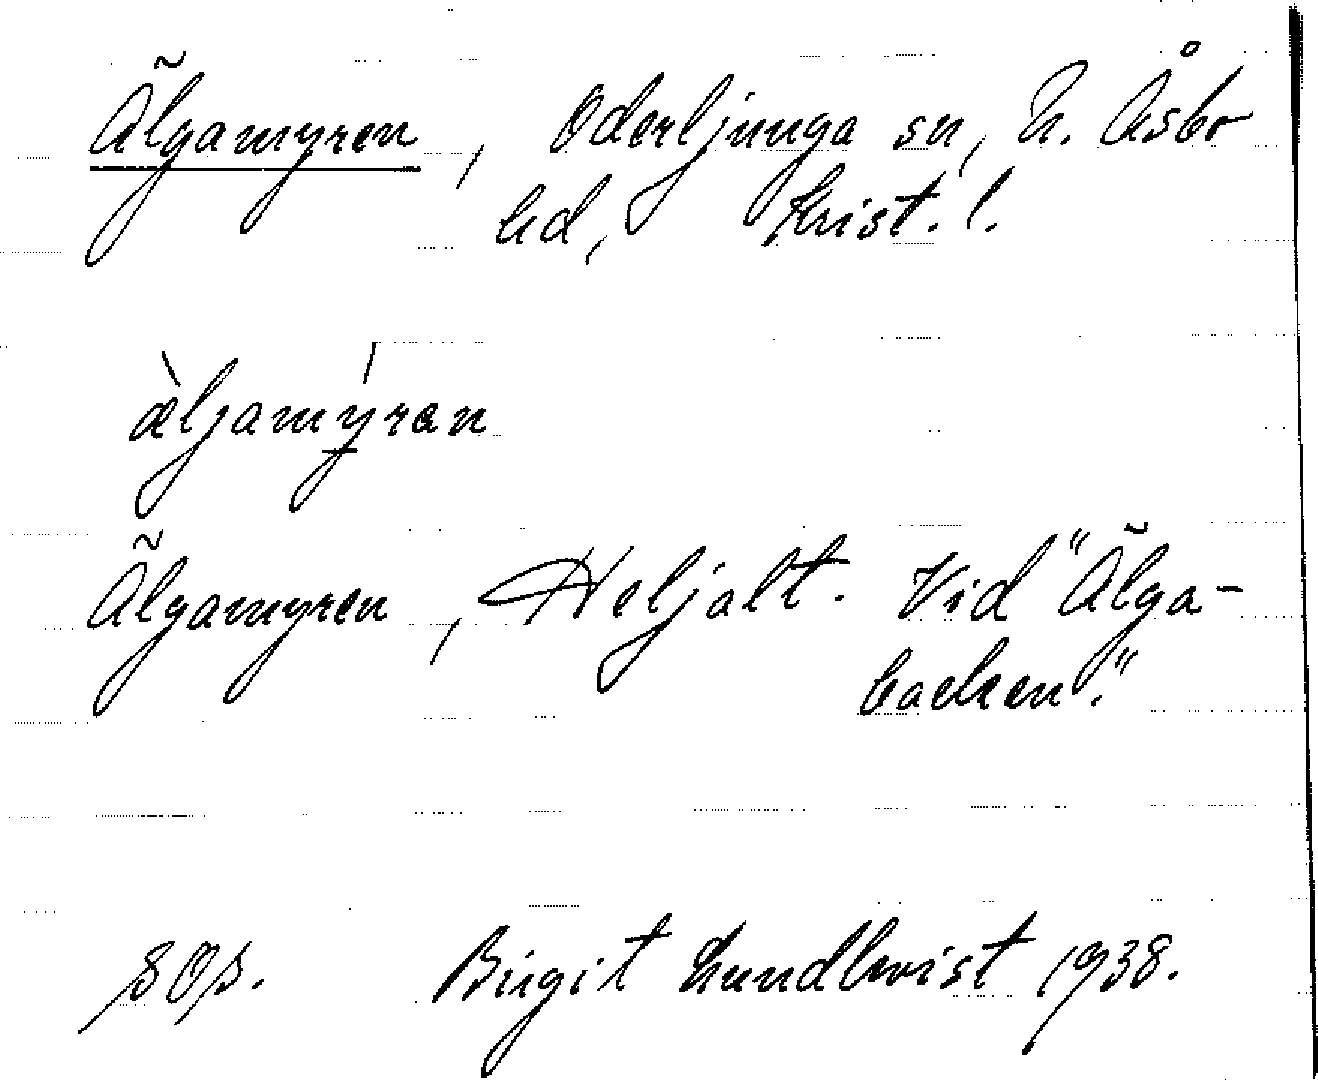 Älgamyren, Oderljunga sn, N. Åsbo
hd, Krist. l.
æ̀ljamýran
Älgamyren, Heljalt. Vid "Älga-
backen".
Birgit Lundkvist 1938.